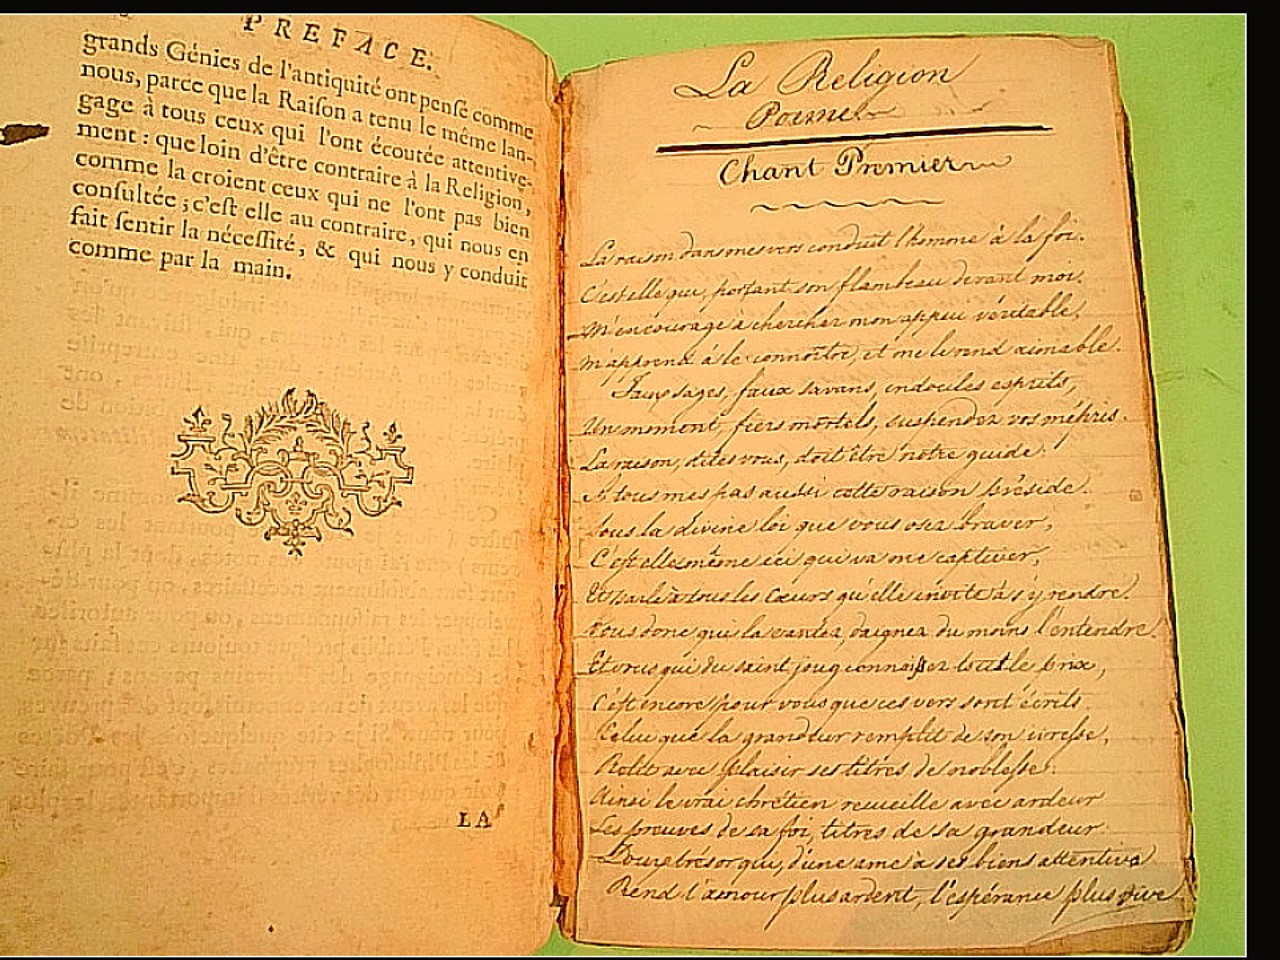 PREFACE.
grands Génies de l'antiquité ont pensé comme
nous, parce que la Raiſon a tenu le même lan-
gage à tous ceux qui l'ont écoutée attentive-
ment : que loin d'être contraire à la Religion,
comme la croient ceux qui ne l'ont pas bien
conſultée ; c'eſt elle au contraire, qui nous en
fait ſentir la néceſſité, & qui nous y conduit
comme par la main.
LA
La Religion
Poeme
Chant Premier
La raison dans mes vers conduit l'homme à la foi.
C'est elle qui, portant son flambeau devant moi,
M'encourage à chercher mon appui véritable,
M'apprend à le connoître, et me le rend aimable.
Faux sages, faux savans, indociles esprits,
Un moment, fiers mortels, suspendez vos mépris.
La raison, dites vous, doit être notre guide.
A tous mes pas aussi cette raison préside.
Sous la divine loi que vous osez braver,
C'est elle même ici qui va me captiver,
Et parle à tous les Cœurs qu'elle invite à s'y rendre.
Vous donc qui la vantez, daignez du moins l'entendre.
Et vous qui du saint joug connoissez tout le prix,
C'est encore pour vous que ces vers sont écrits.
Celui que la grandeur remplit de son ivresse,
Relit avec plaisir ses titres de noblesse:
Ainsi le vrai chrétien recueille avec ardeur
Les preuves de sa foi, titres de sa grandeur:
Doux trésor qui, d'une ame à ses biens attentive
Rend l'amour plus ardent, l'espérance plus vive